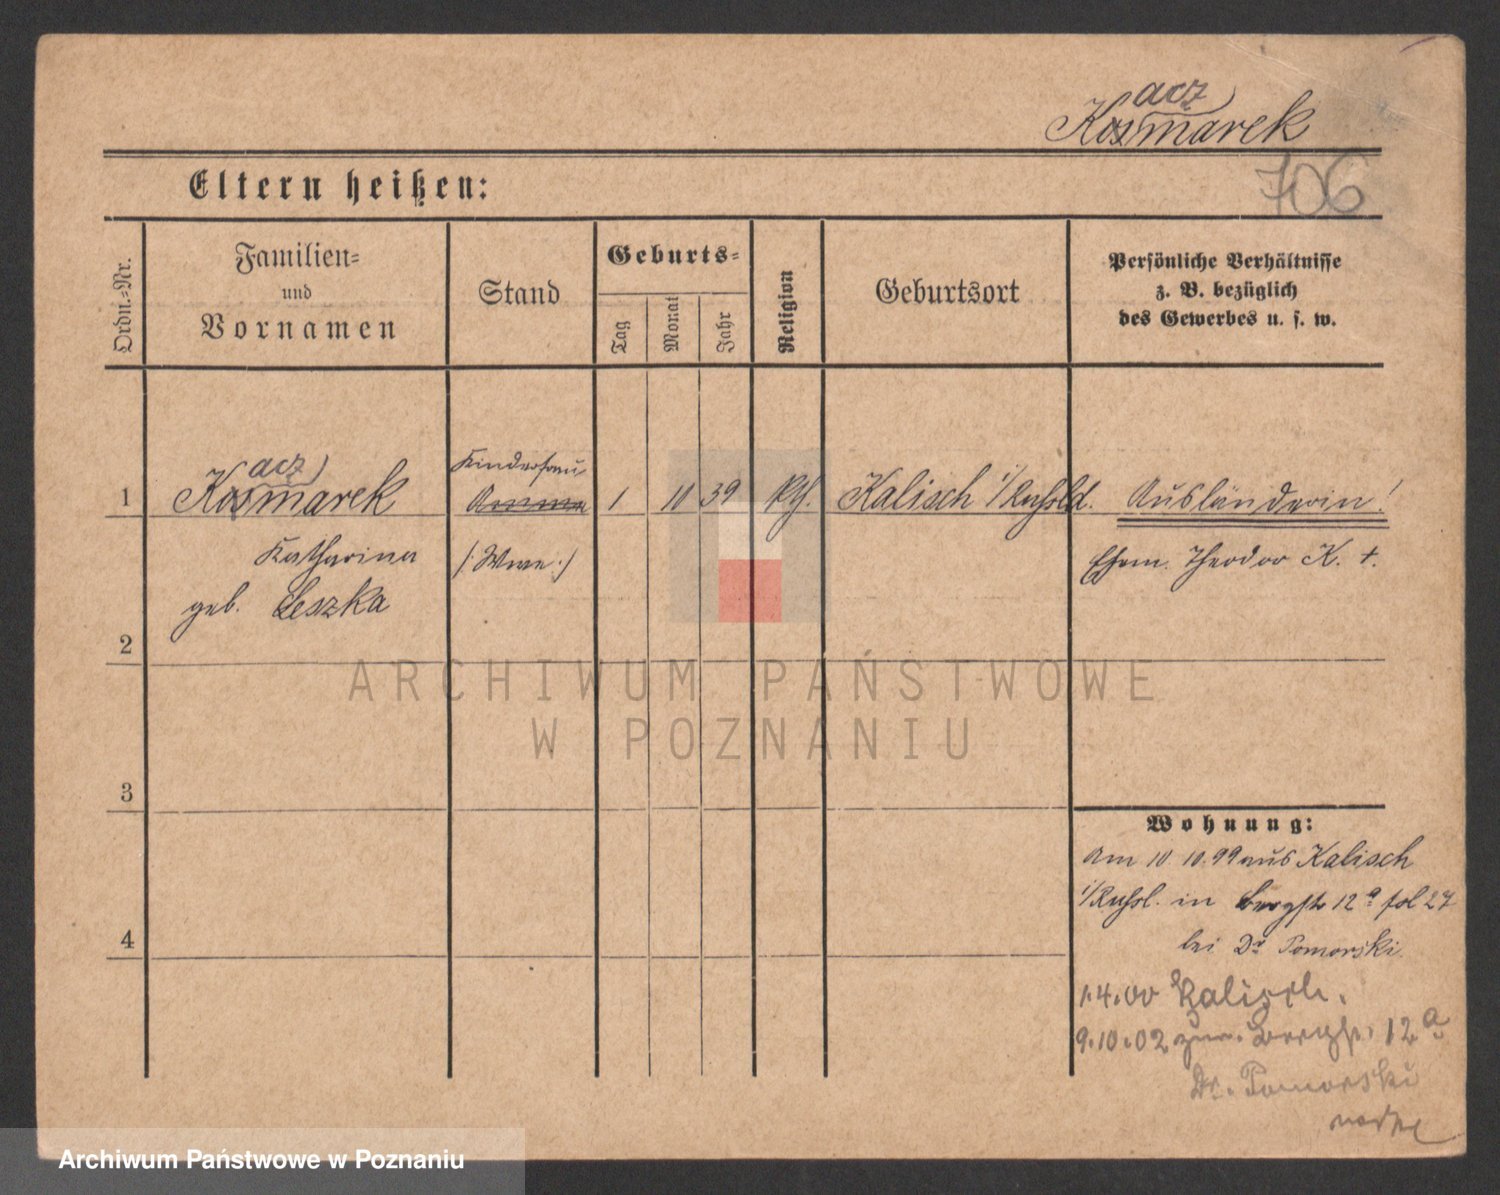 acz
Kosmarek
Eltern heißen:
706
Ordn.-Nr.
Familien-
und
Vornamen
Stand
Geburts-
Tag
Monat
Jahr
Religion
Geburtsort
Persönliche Verhältnisse
z. B. bezüglich
des Gewerbes u. s. w.
acz
1 Kosmarek
Kinderfrau
Amme
1 10 39 kth. Kalisch i/Russld. Ausländerin!
Katharina
(: Wwe :)
Ehem. Theodor K. †.
geb. Leszka
2
ARCHIWUM PAŃSTWOWE
W POZNANIU
3
Wohnung:
Am 10 10.99 aus Kalisch
i/Russl. in Bergstr 12a fol 27
4
bei Dr Pomorski
1.4.00 Kalisch.
9.10.02 zur. Bergstr. 12a
Dr. Pomorski
Archiwum Państwowe w Poznaniu